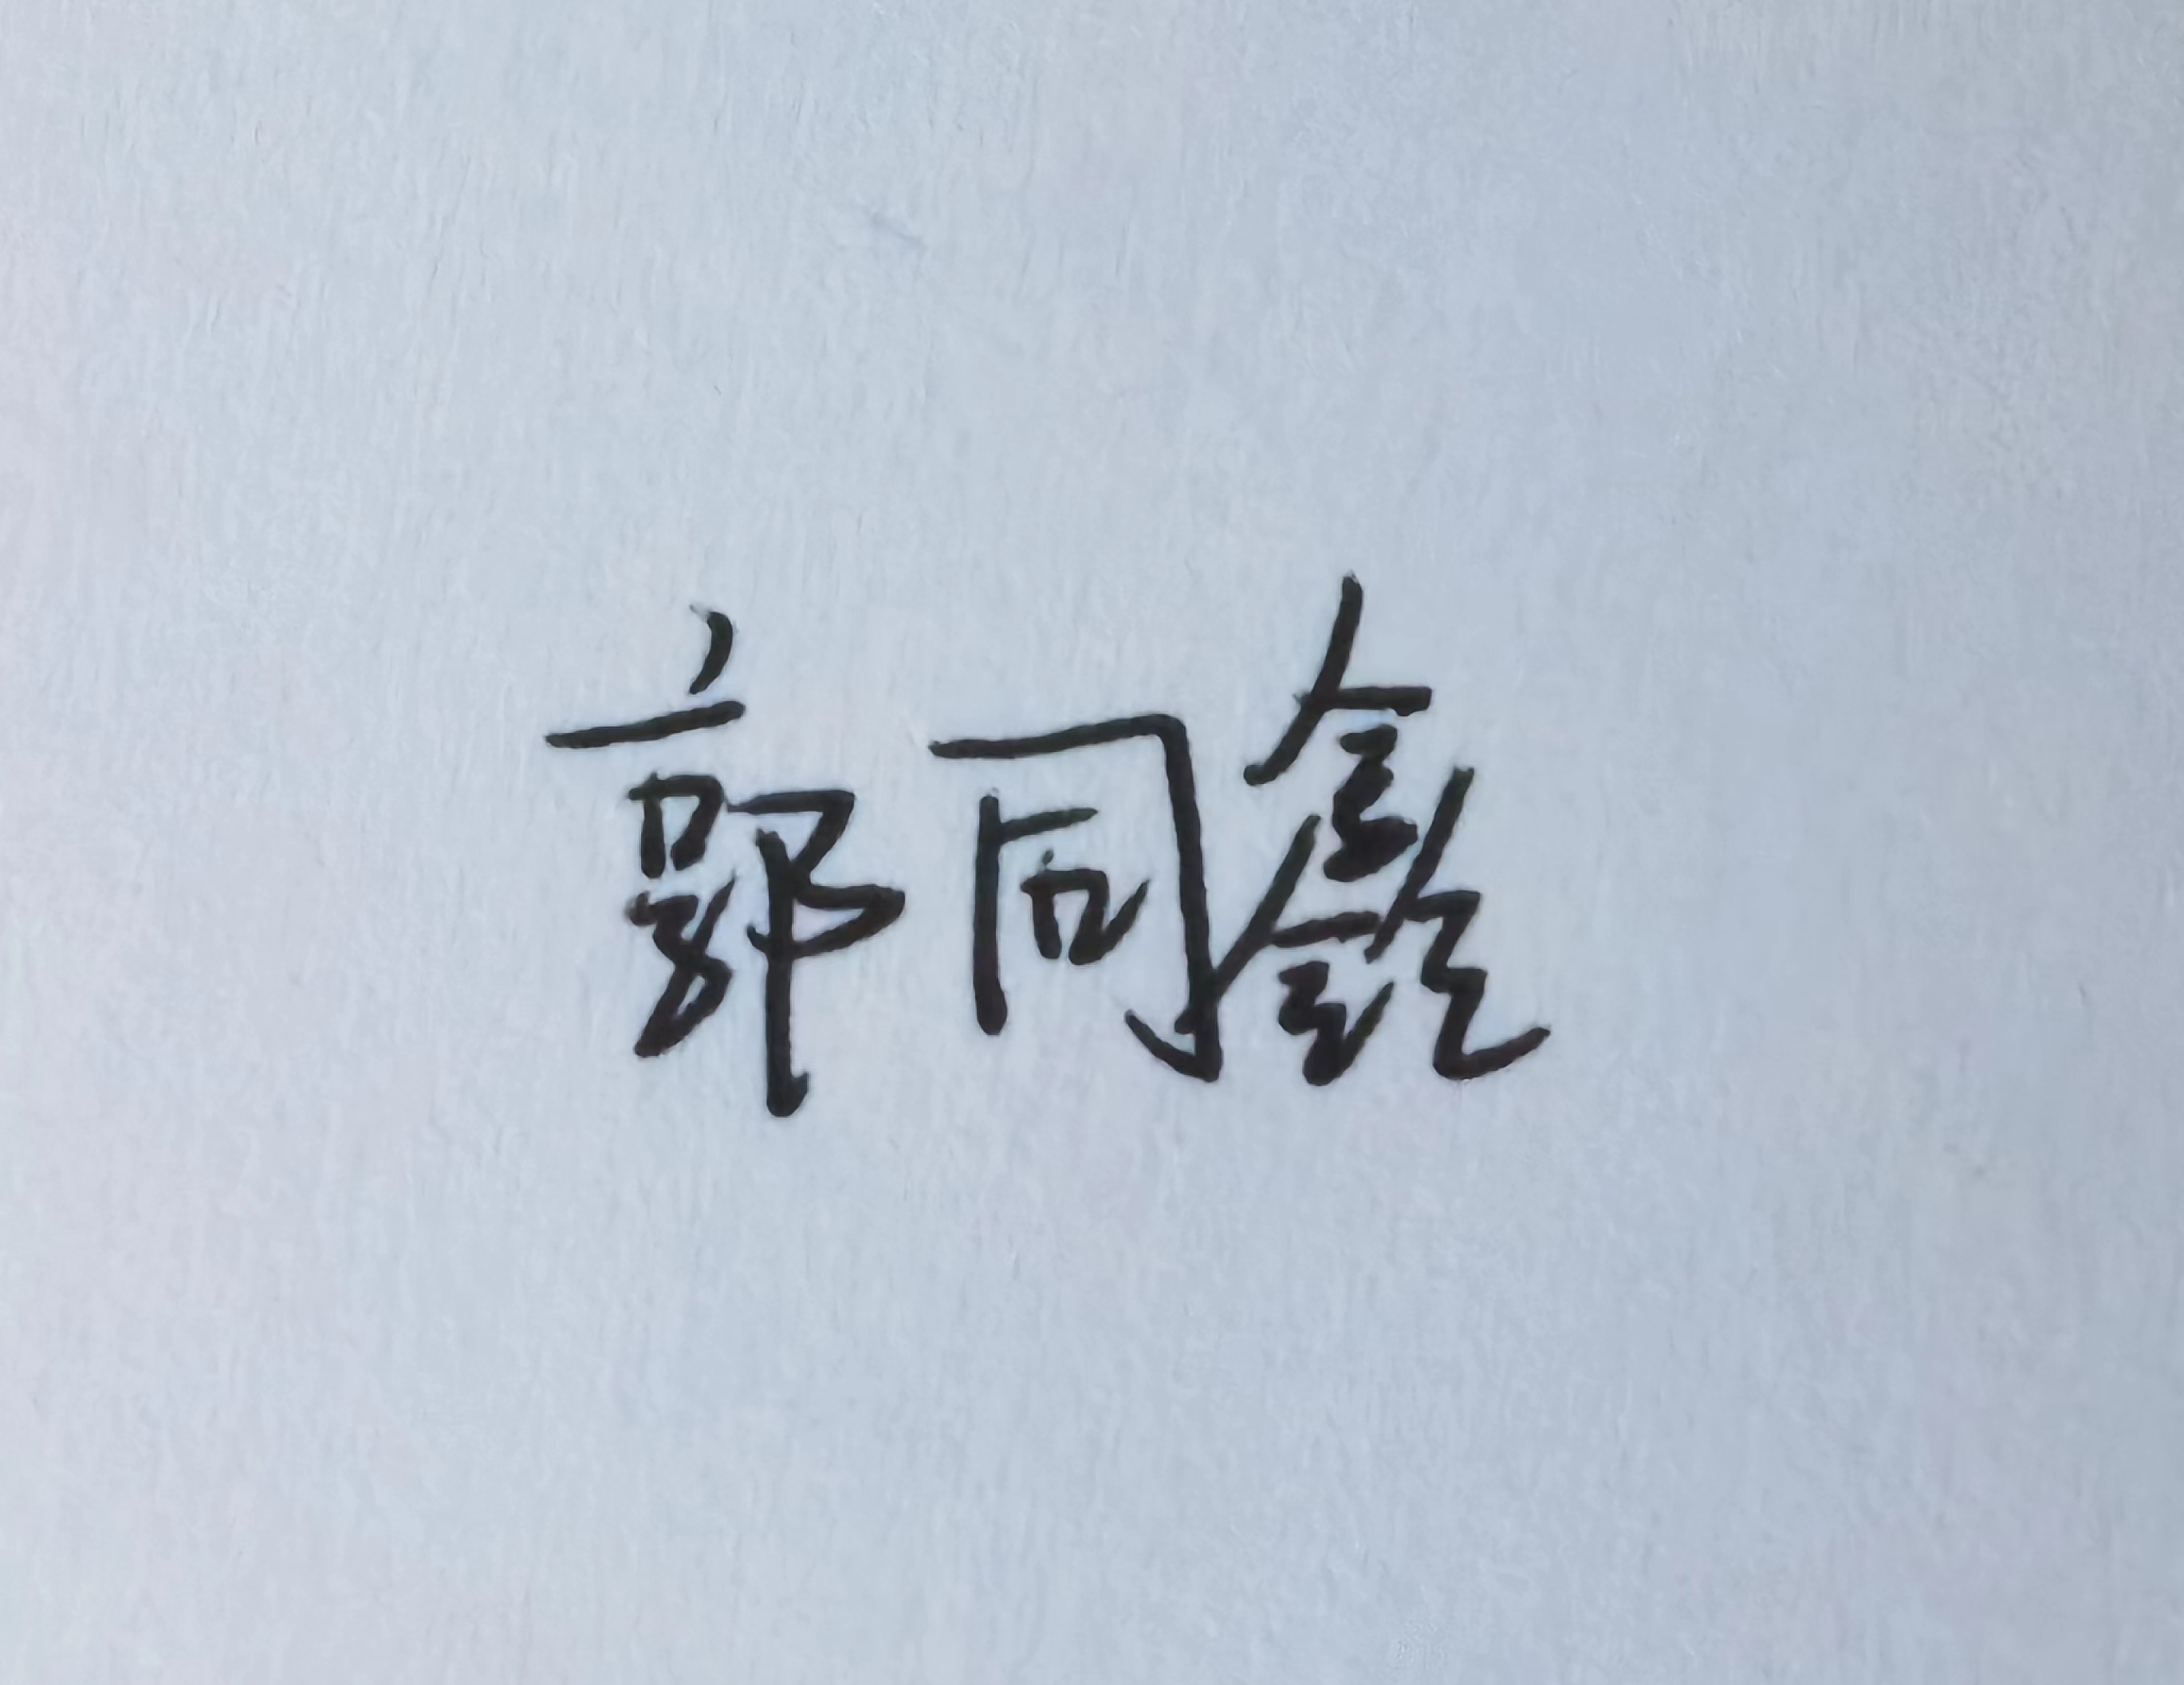 郭同鑫